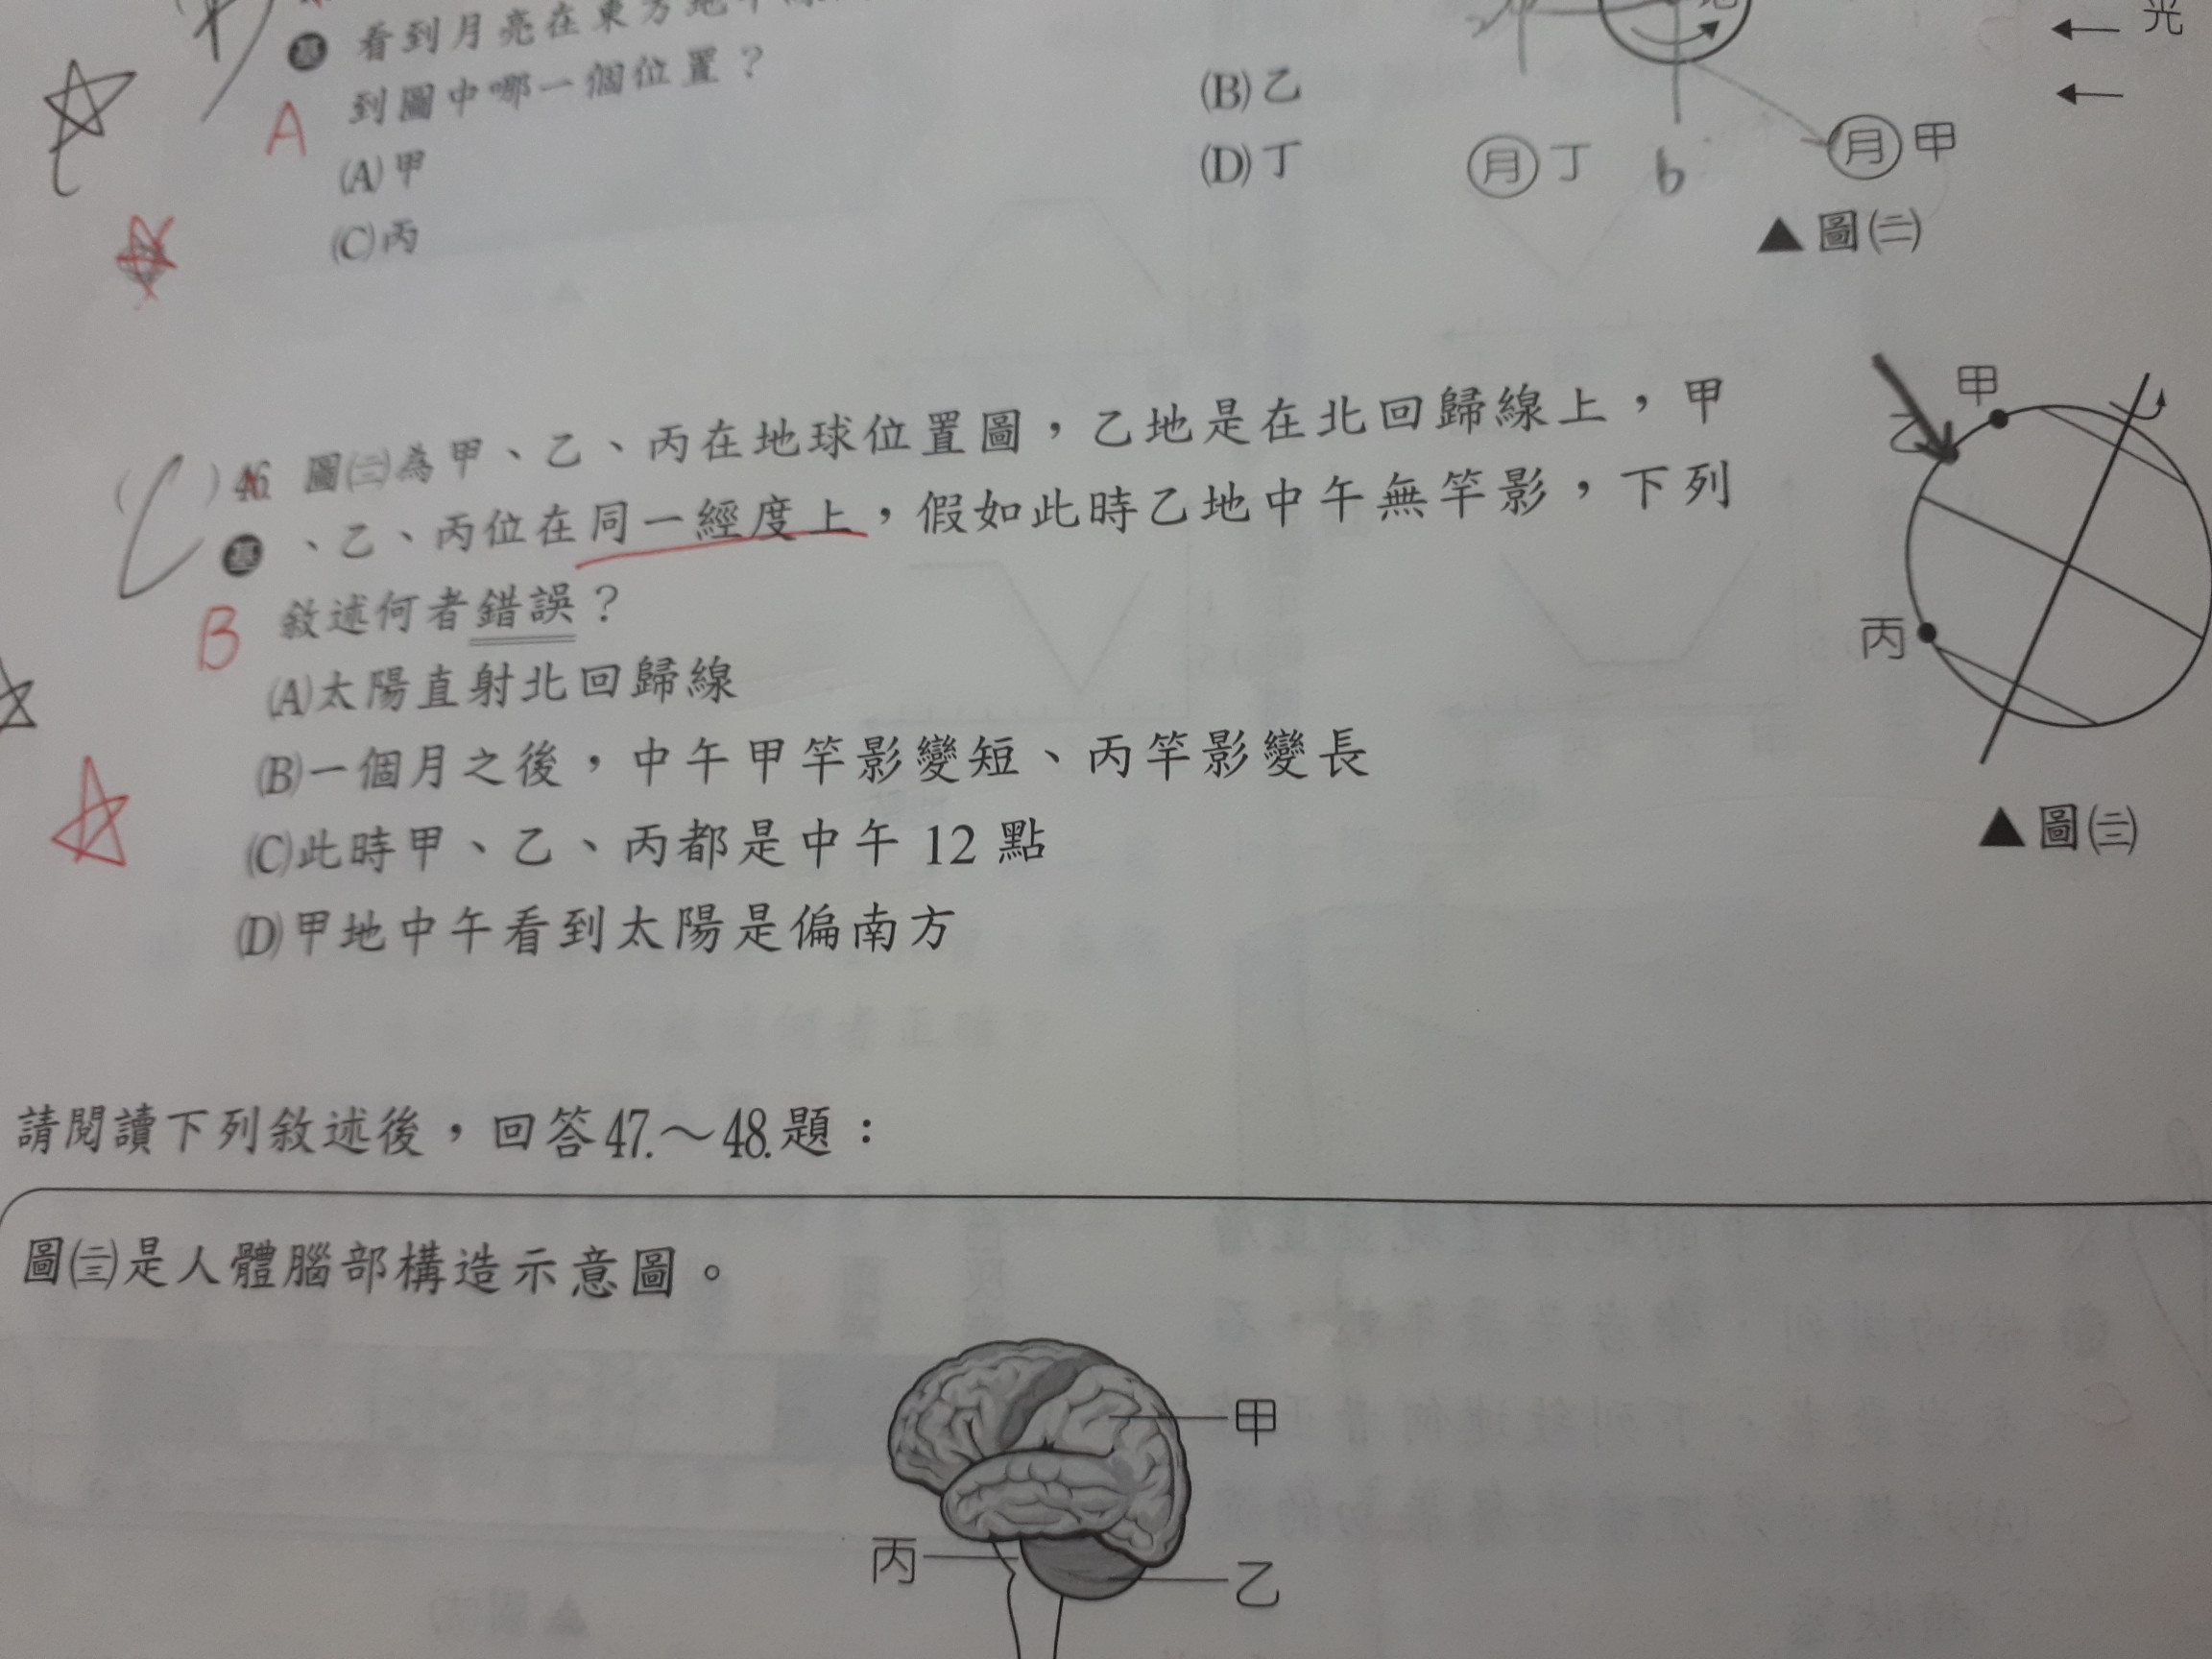 看到月亮在東方地平
基 到圖中哪一個位置？
A
(A)甲
(B)乙
(C)丙
(D)丁
地
光
月 丁
b
月 甲
▲圖(二)
( C ) 46. 圖(三)為甲、乙、丙在地球位置圖，乙地是在北回歸線上，甲
基 、乙、丙位在同一經度上，假如此時乙地中午無竿影，下列
B 敘述何者錯誤？
(A)太陽直射北回歸線
(B)一個月之後，中午甲竿影變短、丙竿影變長
(C)此時甲、乙、丙都是中午 12 點
(D)甲地中午看到太陽是偏南方
甲
乙
丙
▲圖(三)
請閱讀下列敘述後，回答47.～48.題：
圖(三)是人體腦部構造示意圖。
甲
丙
乙